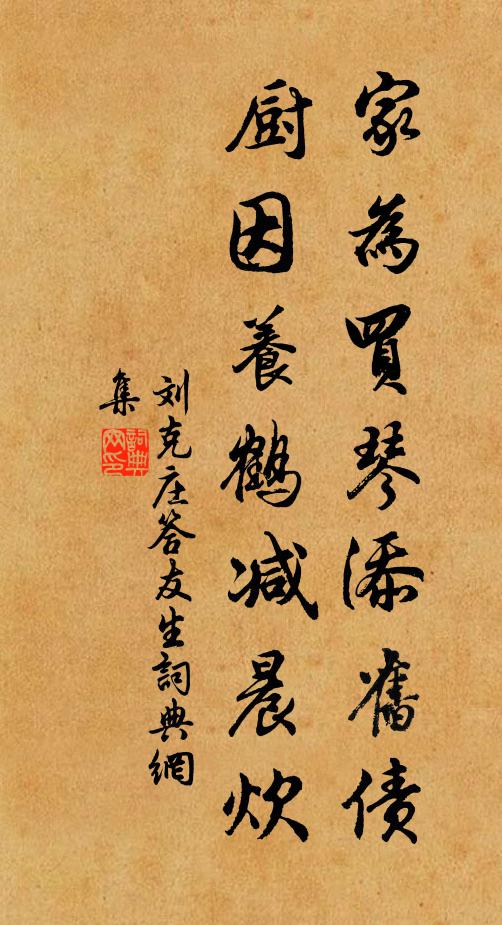 家為買琴添舊債
厨因養鶴减晨炊
刘克庄答友生詞典網
集
詞典網印